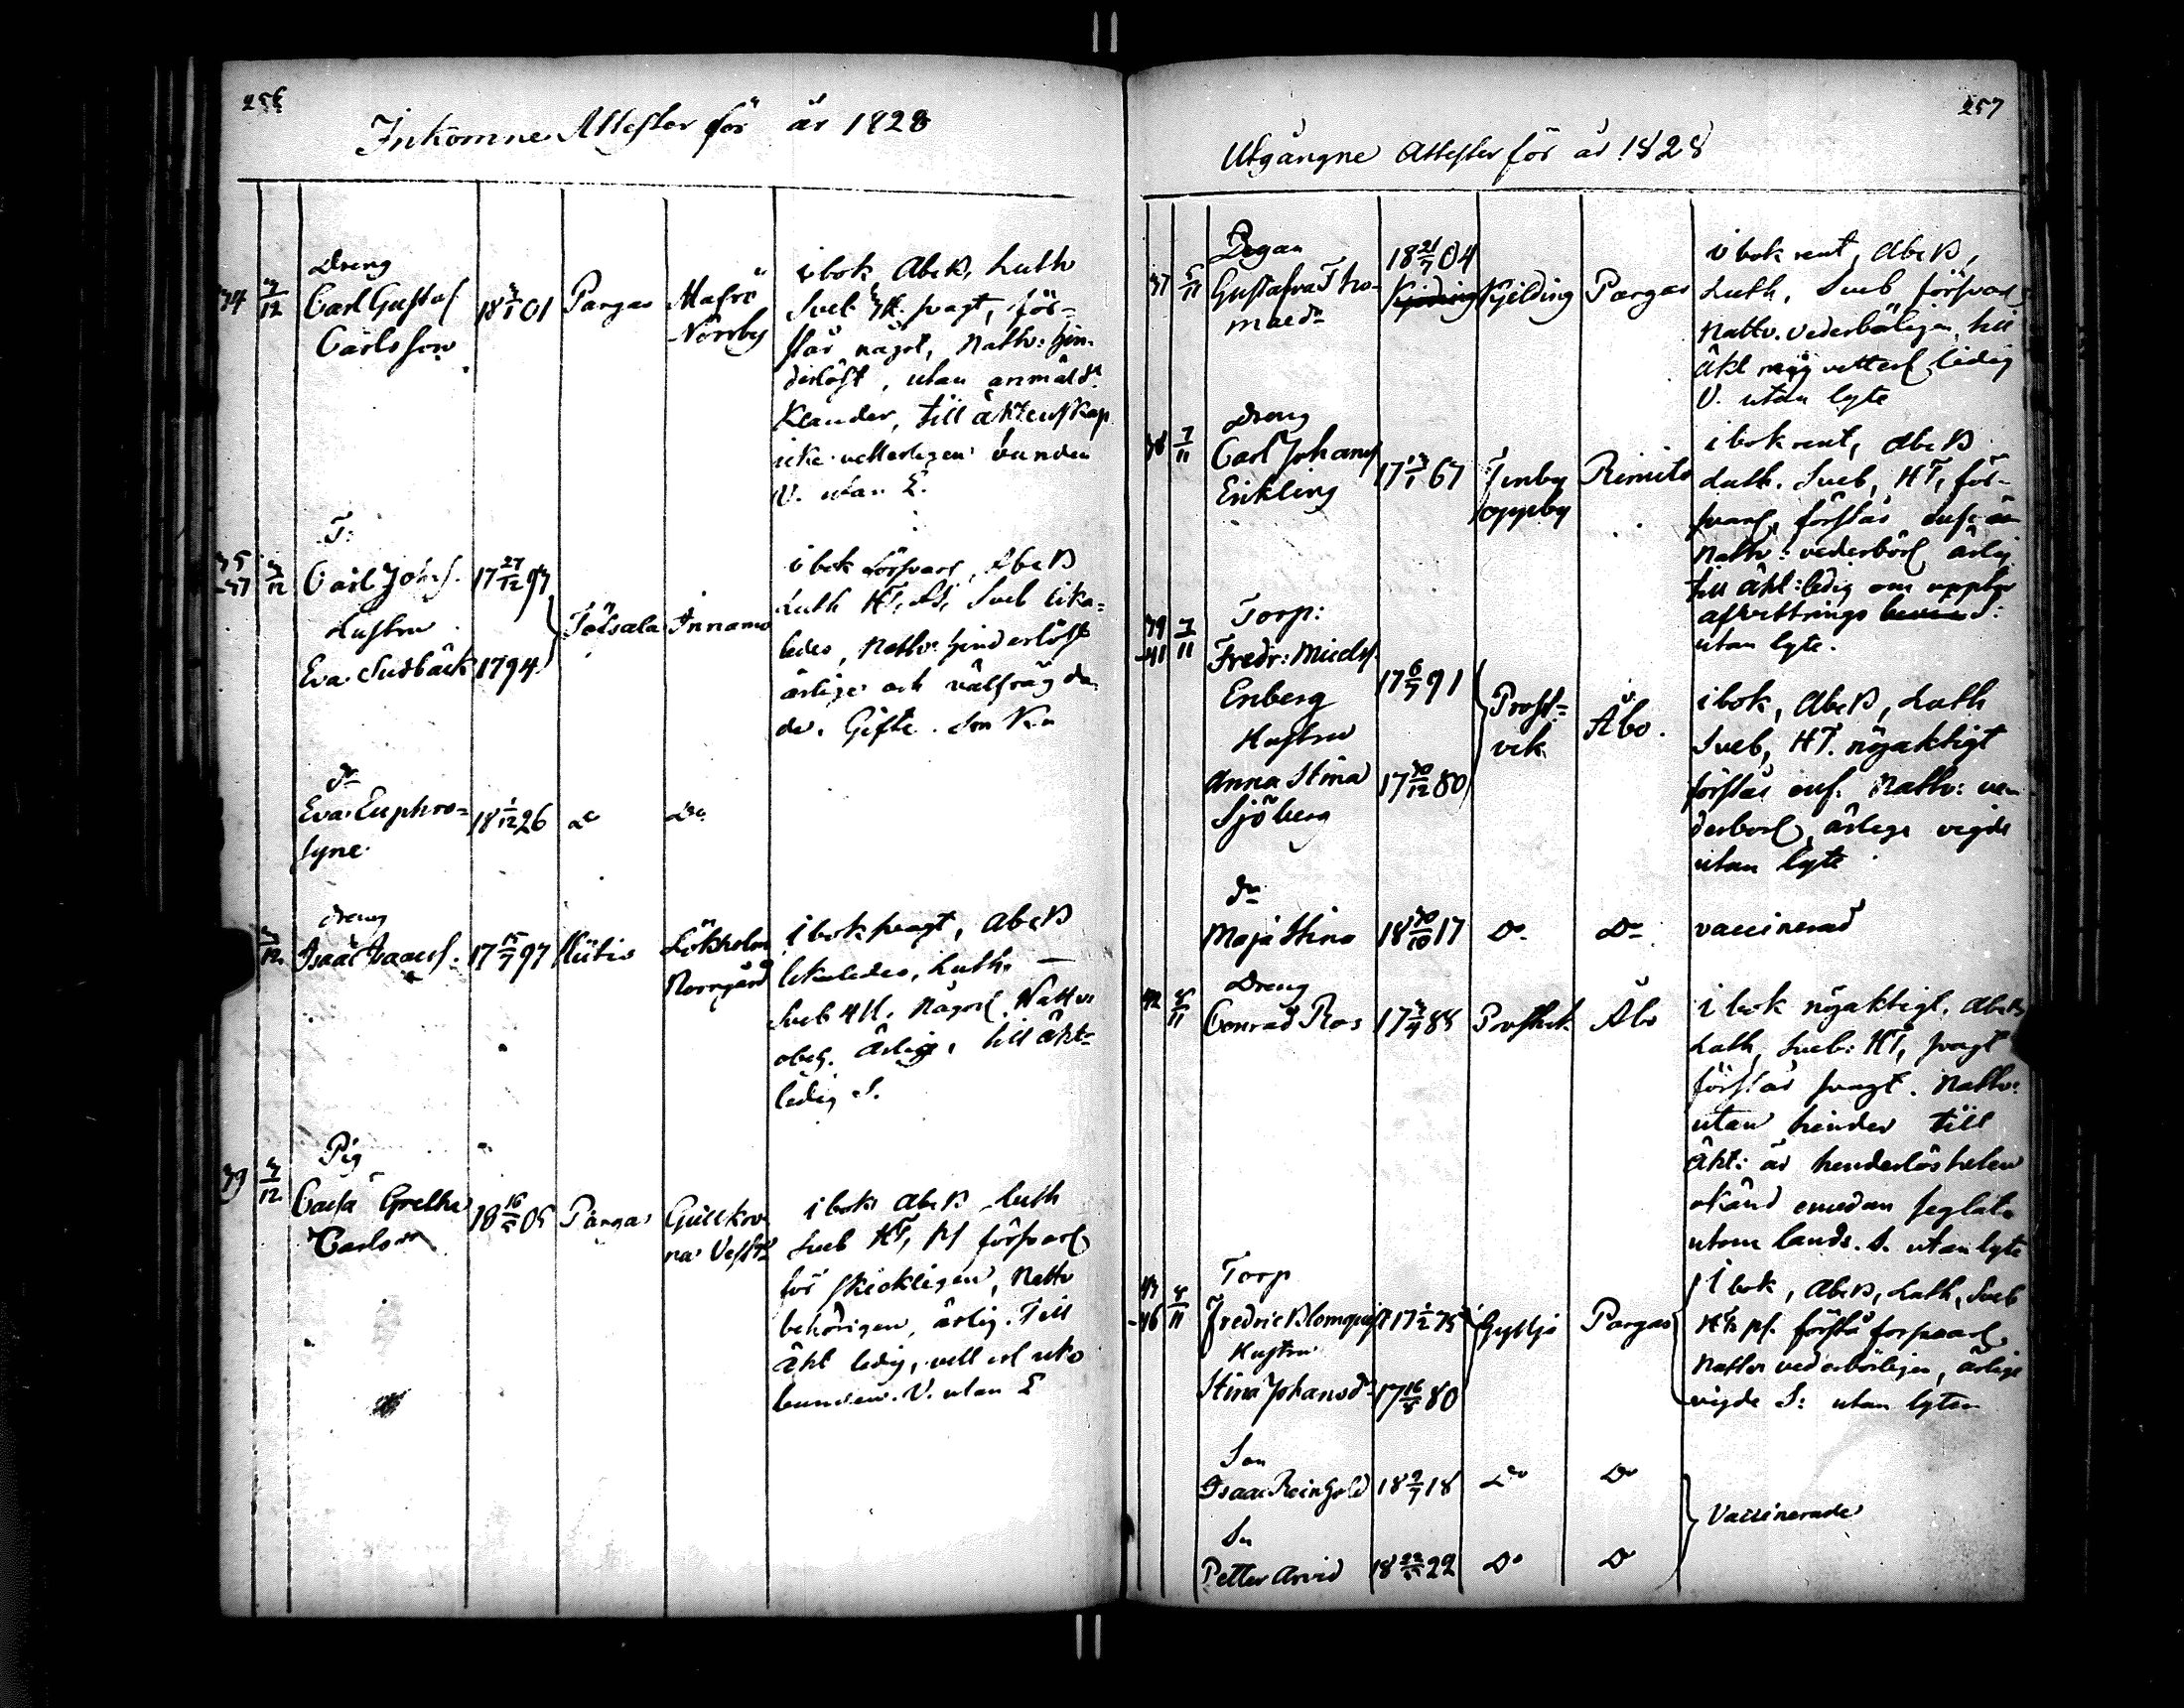 256
Inkomne Attester för år 1828
34 3/12 Dreng
Carl Gustaf
Carlsson
18 3/1 01 Pargas Attafrö
Norrby
i bok AbcB, Luth
Sveb svagt, för-
står något, Nattv: hin-
derlöst, utan anmäld
klander, till äktenskap
icke vetterligen bunden
V. utan L.
35
-37 3/12 T:
Carl Johs.
Hustru
Eva Sudbäck
17 27/12 97
1794
Töfsala Innamo
i bok försvarl, AbcB
Luth HT, Sveb lika-
ledes, Nattv: hinderlöst
ärlige och välfrägda
de. Gifte.
Dr
Eva Euphro-
syne
18 1/12 26 Do Do
3/12 Dreng
Isaac Isaacs.
17 15/7 97 Kütis Lökholm
Norrgård
i bok svagt, AbcB
likaledes, Luth. —
Sveb Någorl. Nattv:
obeh. ärlig, till äkt=
ledig S.
39 3/12 Pig
Cajsa Gretha
Carlsdr
18 16/5 05 Pargas Gullkro
na Vestr
i bok AbcB Luth
Sveb HT, ps försvarl
för skickligen, Nattv
behörigen, ärlig. Till
äkt ledig, vetterl icke
bunden. V. utan L
257
Utgångne Attester för år 1828
37 5/11 Pigan
Gustafva Tho-
masdr
18 21/7 04
Kjelding Pargas
i bok rent, AbcB,
Luth, Sveb försvarl
Nattv. vederbörligen, till
äkt veterl ledig
V. utan lyte
38 7/11 Dreng
Carl Johans
Enkling
17 13/1 67 Finby
oppby
Rimito
i bok rent, AbcB
Luth. Sveb, HT, för-
svarl, förstår
Nattv: vederbörl ärlig
till äkt: ledig om uppter
afvittrings
utan lyte.
39
-41 7/11 Torp:
Fredr: Michelss.
Enberg
Hustru
Anna Stina
Sjöberg
17 6/7 91
17 30/12 80
Prost-
vik
Åbo.
i bok, AbcB, Luth
Sveb, HT. nöjaktigt
förstår Nattv: ve-
derborl, ärlige vigde
utan lyte
Dr
Maja Stina 18 30/10 17 Do Do vaccinerad
42 8/11 Dreng
Conrad Ros 17 3/4 88 Prostvik Åbo
i bok nöjaktigt. AbcB
Luth, Sveb: HT, svagt
förstår svagt. Nattv:
utan hinder till
Äkt: är hinderlösheten
okänd emedan seglat
utom lands. S. utan lyte
43
-46 8/11 Torp
Fredric Blomquist
Hustru
Stina Johansdr
17 1/2 75
17 16/5 80
Gyttja Pargas
i bok, AbcB, Luth, Sveb
HT ps. förstå försvarl.
Nattv vederbörligen, ärlige
vigde S: utan lyten
Son
Isaac Reinhold 18 9/7 18 Do Do
Sn
Petter Arvid 18 22/5 22 Do Do
Vaccinerade